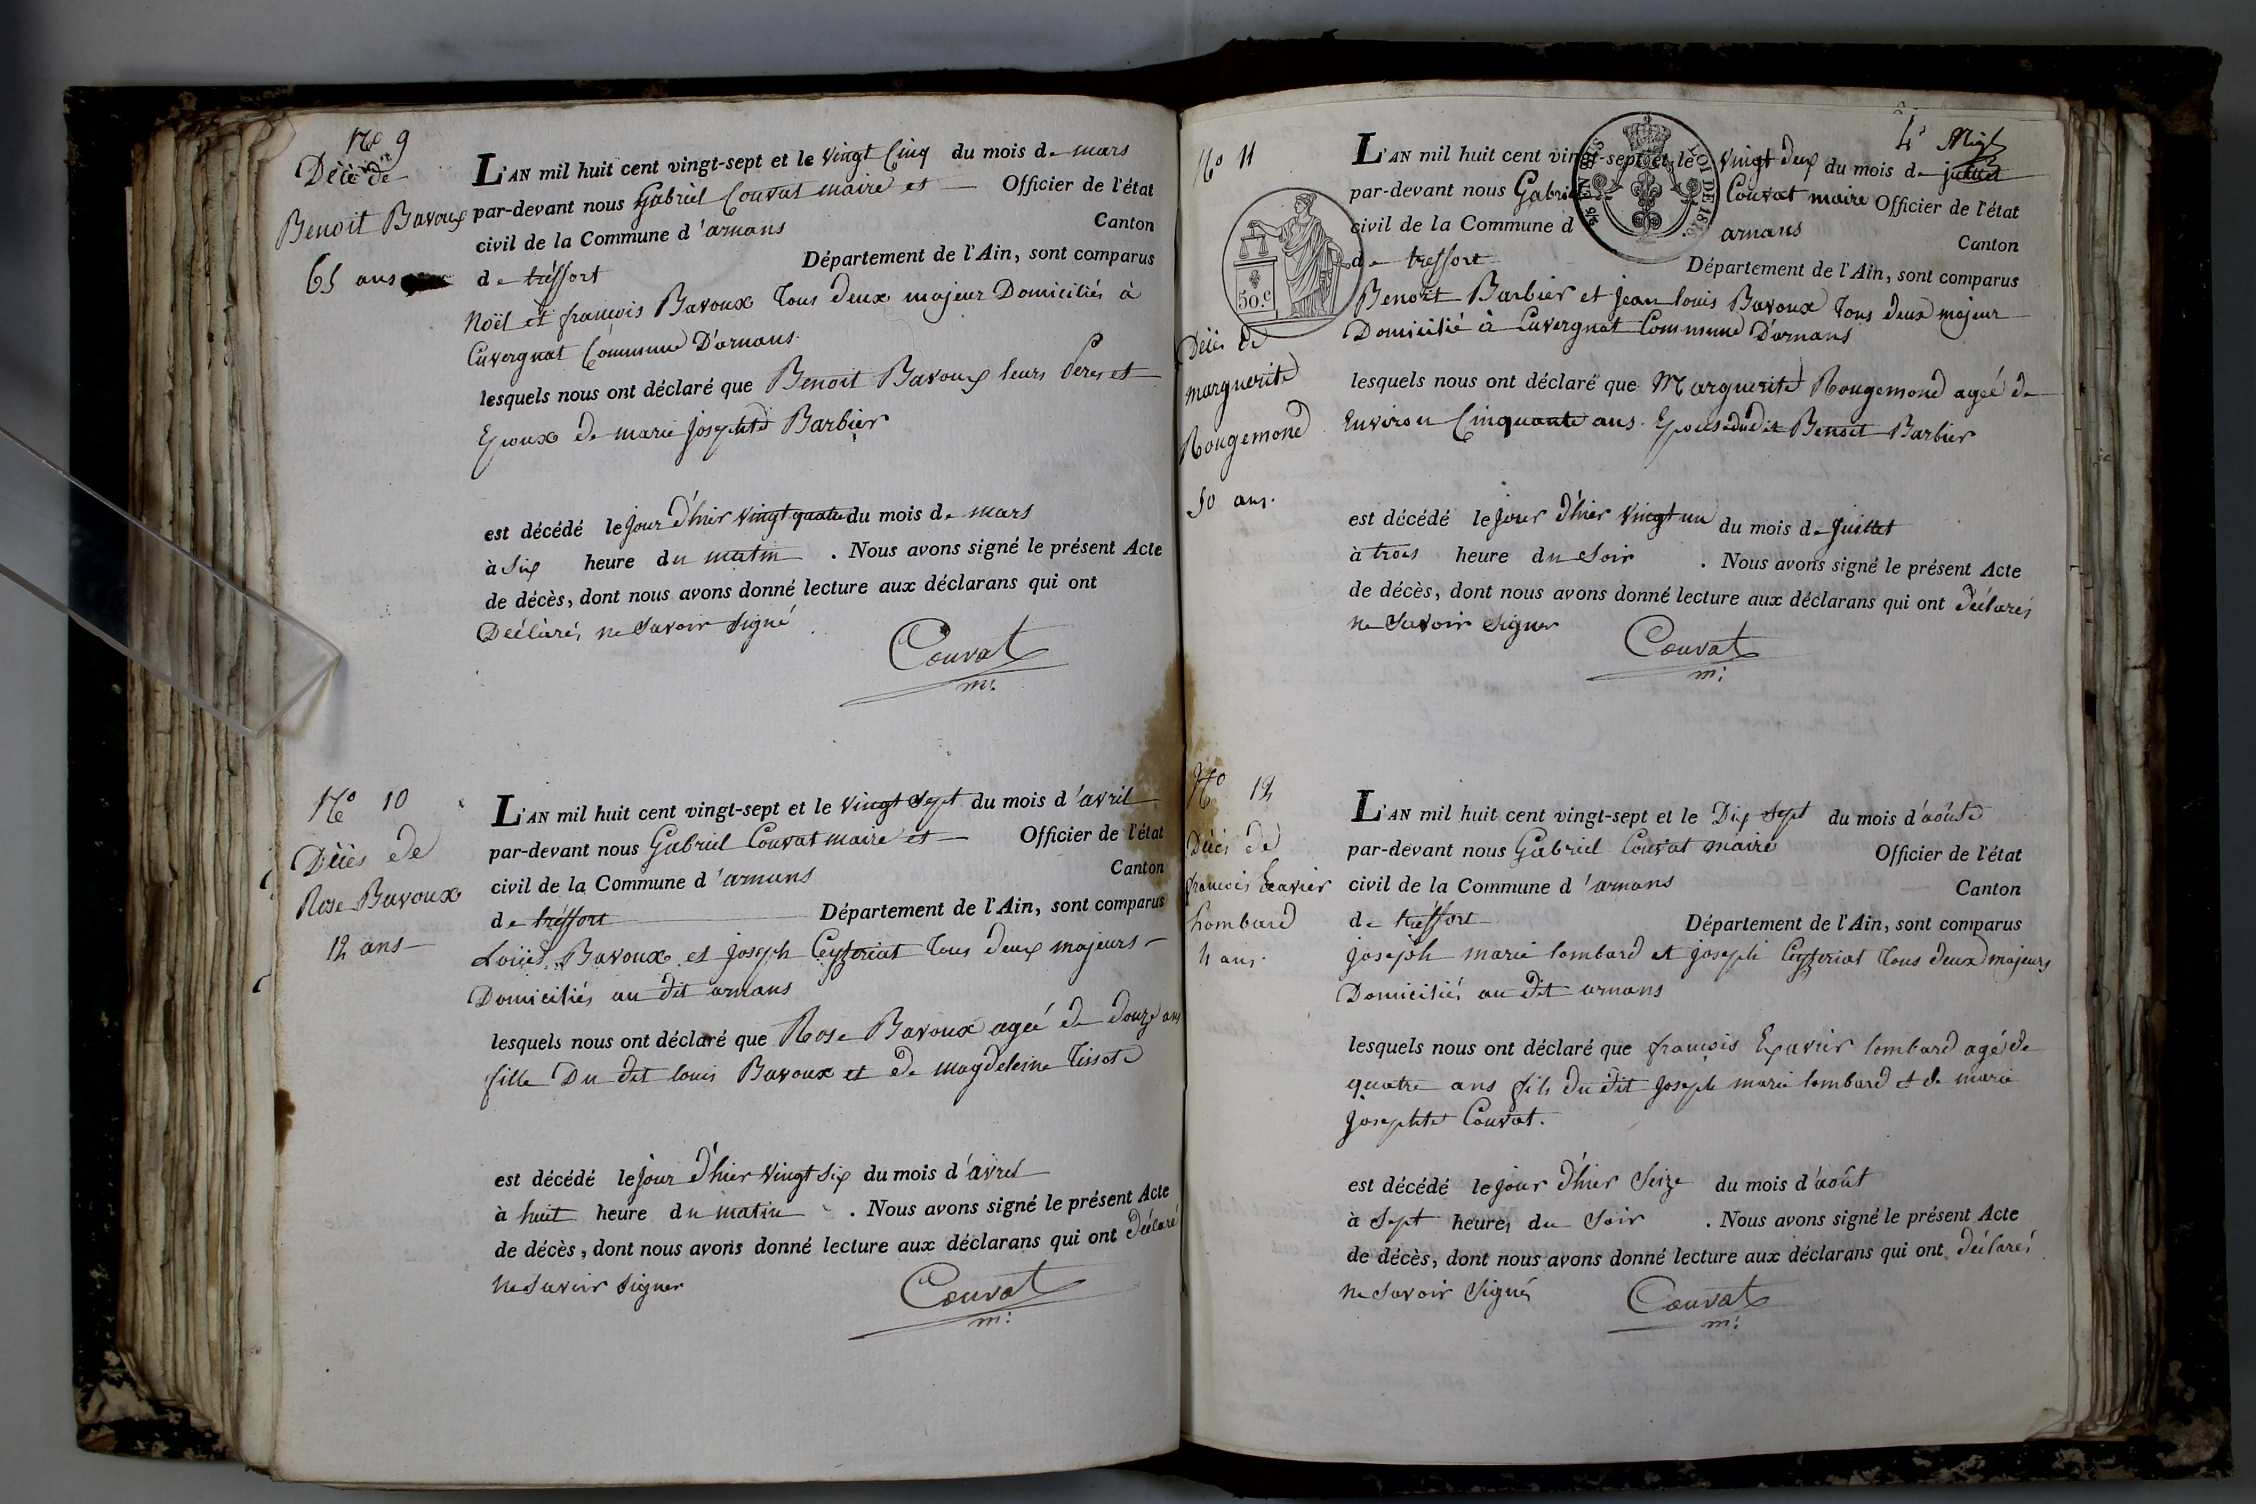 N.º 9
Décès de
Benoit Bavoux
65 ans
L'AN mil huit cent vingt-sept et le vingt Cinq du mois de mars
par-devant nous Gabriel Couvat maire et Officier de l'état
civil de la Commune d'arnans Canton
de tréffort Département de l'Ain, sont comparus
Noël et françois Bavoux Tous deux majeur Domiciliés à
Cuvergnat Commune D'arnans.
lesquels nous ont déclaré que Benoit Bavoux leurs Peres et
Epoux de marie Josephte Barbier
est décédé le jour d'hier vingt quatre du mois de mars
à Six heure du matin. Nous avons signé le présent Acte
de décès, dont nous avons donné lecture aux déclarans qui ont
Déclarés ne Savoir Signé
Couvat
m:
N.º 10
Décès de
Rose Bavoux
12 ans
L'AN mil huit cent vingt-sept et le vingt Sept du mois d'avril
par-devant nous Gabriel Couvat maire et Officier de l'état
civil de la Commune d'arnans Canton
de tréffort Département de l'Ain, sont comparus
Louis Bavoux et Joseph Ceyzeriat Tous deux majeurs
Domiciliés au dit arnans
lesquels nous ont déclaré que Rose Bavoux ageé de douze ans
fille Du dit louis Bavoux et de magdeleine Tissot
est décédé le jour d'hier vingt Six du mois d'avril
à huit heure du matin. Nous avons signé le présent Acte
de décès, dont nous avons donné lecture aux déclarans qui ont déclaré
ne Savoir Signer
Couvat
m:
Nº 11
50.c
Décès de
marguerite
Rougemond
50 ans.
LOI DE 1816
L'AN mil huit cent vingt-sept et le vingt deux du mois de juillet
par-devant nous Gabriel Couvat maire Officier de l'état
civil de la Commune d arnans Canton
de treffort Département de l'Ain, sont comparus
Benoit Barbier et Jean louis Bavoux Tous deux majeur
Domicilié à Cuvergnat Commune D'arnans
lesquels nous ont déclaré que Marguerite Rougemond ageé de
Environ Cinquante ans. Epouse dudit Benoit Barbier
est décédé le jour d'hier vingt un du mois de Juillet
à trois heure du Soir. Nous avons signé le présent Acte
de décès, dont nous avons donné lecture aux déclarans qui ont déclarés
ne Savoir Signer
Couvat
m:
Nº 12
Décès de
françois Exavier
lombard
4 ans.
L'AN mil huit cent vingt-sept et le Dix Sept du mois d'août
par-devant nous Gabriel Couvat maire Officier de l'état
civil de la Commune d'arnans Canton
de tréffort Département de l'Ain, sont comparus
joseph marie lombard et joseph Ceyzeriat Tous deux majeurs
Domiciliés au dit arnans
lesquels nous ont déclaré que françois Exavier lombard agé de
quatre ans fils du dit joseph marie lombard et de marie
Josephte Couvat.
est décédé le jour d'hier Seize du mois d'août
à Sept heures du Soir. Nous avons signé le présent Acte
de décès, dont nous avons donné lecture aux déclarans qui ont déclarés
ne Savoir Signés
Couvat
m: